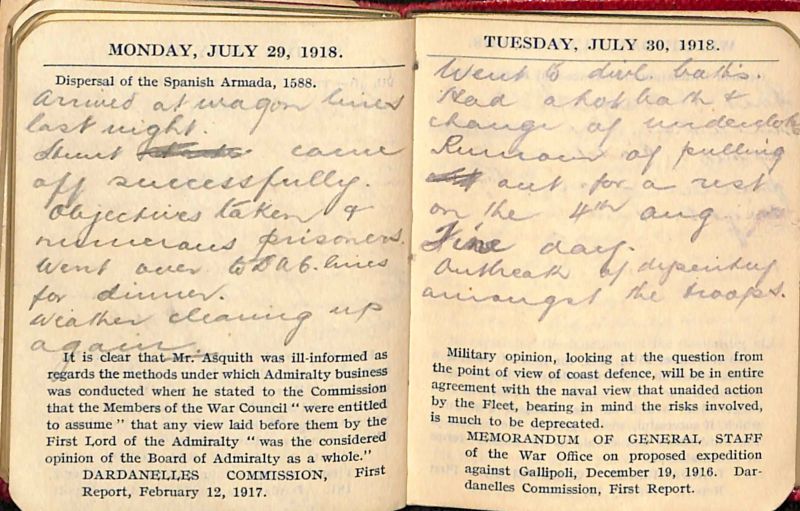 MONDAY, JULY 29, 1918.
Dispersal of the Spanish Armada, 1588.
Arrived at wagon lines
last night.
Stunt came
off successfully.
Objectives taken &
numerous prisoners.
Went over to D.A.C. lines
for dinner.
Weather clearing up
again.
It is clear that Mr. Asquith was ill-informed as
regards the methods under which Admiralty business
was conducted when he stated to the Commission
that the Members of the War Council “ were entitled
to assume ” that any view laid before them by the
First Lord of the Admiralty “ was the considered
opinion of the Board of Admiralty as a whole.”
DARDANELLES COMMISSION, First
Report, February 12, 1917.
TUESDAY, JULY 30, 1918.
Went to divl. baths.
Had a hot bath &
change of undercloths
Rumour of pulling
out for a rest
on the 4th Aug
Fine day.
Outbreak of dysentery
amongst the troops.
Military opinion, looking at the question from
the point of view of coast defence, will be in entire
agreement with the naval view that unaided action
by the Fleet, bearing in mind the risks involved,
is much to be deprecated.
MEMORANDUM OF GENERAL STAFF
of the War Office on proposed expedition
against Gallipoli, December 19, 1916. Dar-
danelles Commission, First Report.